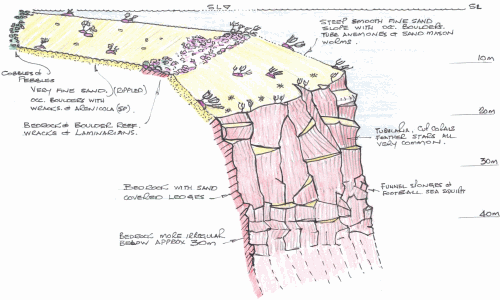 SL SL
STEEP SMOOTH FINE SAND
SLOPE WITH OCC. BOULDERS.
TUBE ANEMONES & SAND MASON
WORMS.
10m
COBBLES &
PEBBLES
VERY FINE SAND. (RIPPLED)
OCC. BOULDERS WITH
WRACKS & ARENICOLA (SP).
BEDROCK & BOULDER REEF.
WRACKS & LAMINARIANS.
20m
TUBULARIA, CUP CORALS
FEATHER STARS ALL
VERY COMMON.
30m
BEDROCK WITH SAND
COVERED LEDGES
FUNNEL SPONGES &
FOOTBALL SEA SQUIRT
40m
BEDROCK MORE IRREGULAR
BELOW APPROX 30m